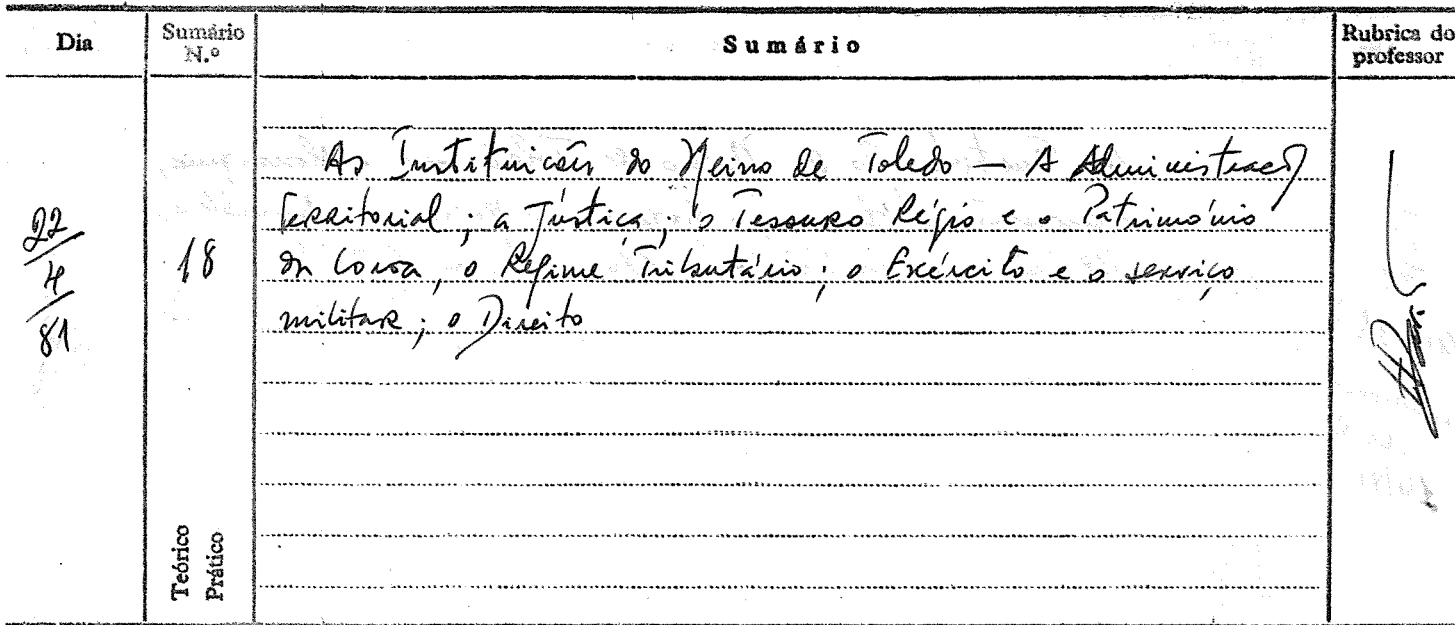 Dia
Sumário N.º
Sumário
Rubrica do professor
22/4/81
18
As Instituições do Reino de Toledo — A Administração
territorial; a Justiça; o Tesouro Régio e o Património
da Coroa, o Regime Tributário; o Exército e o serviço
militar; o Direito
Teórico
Prático